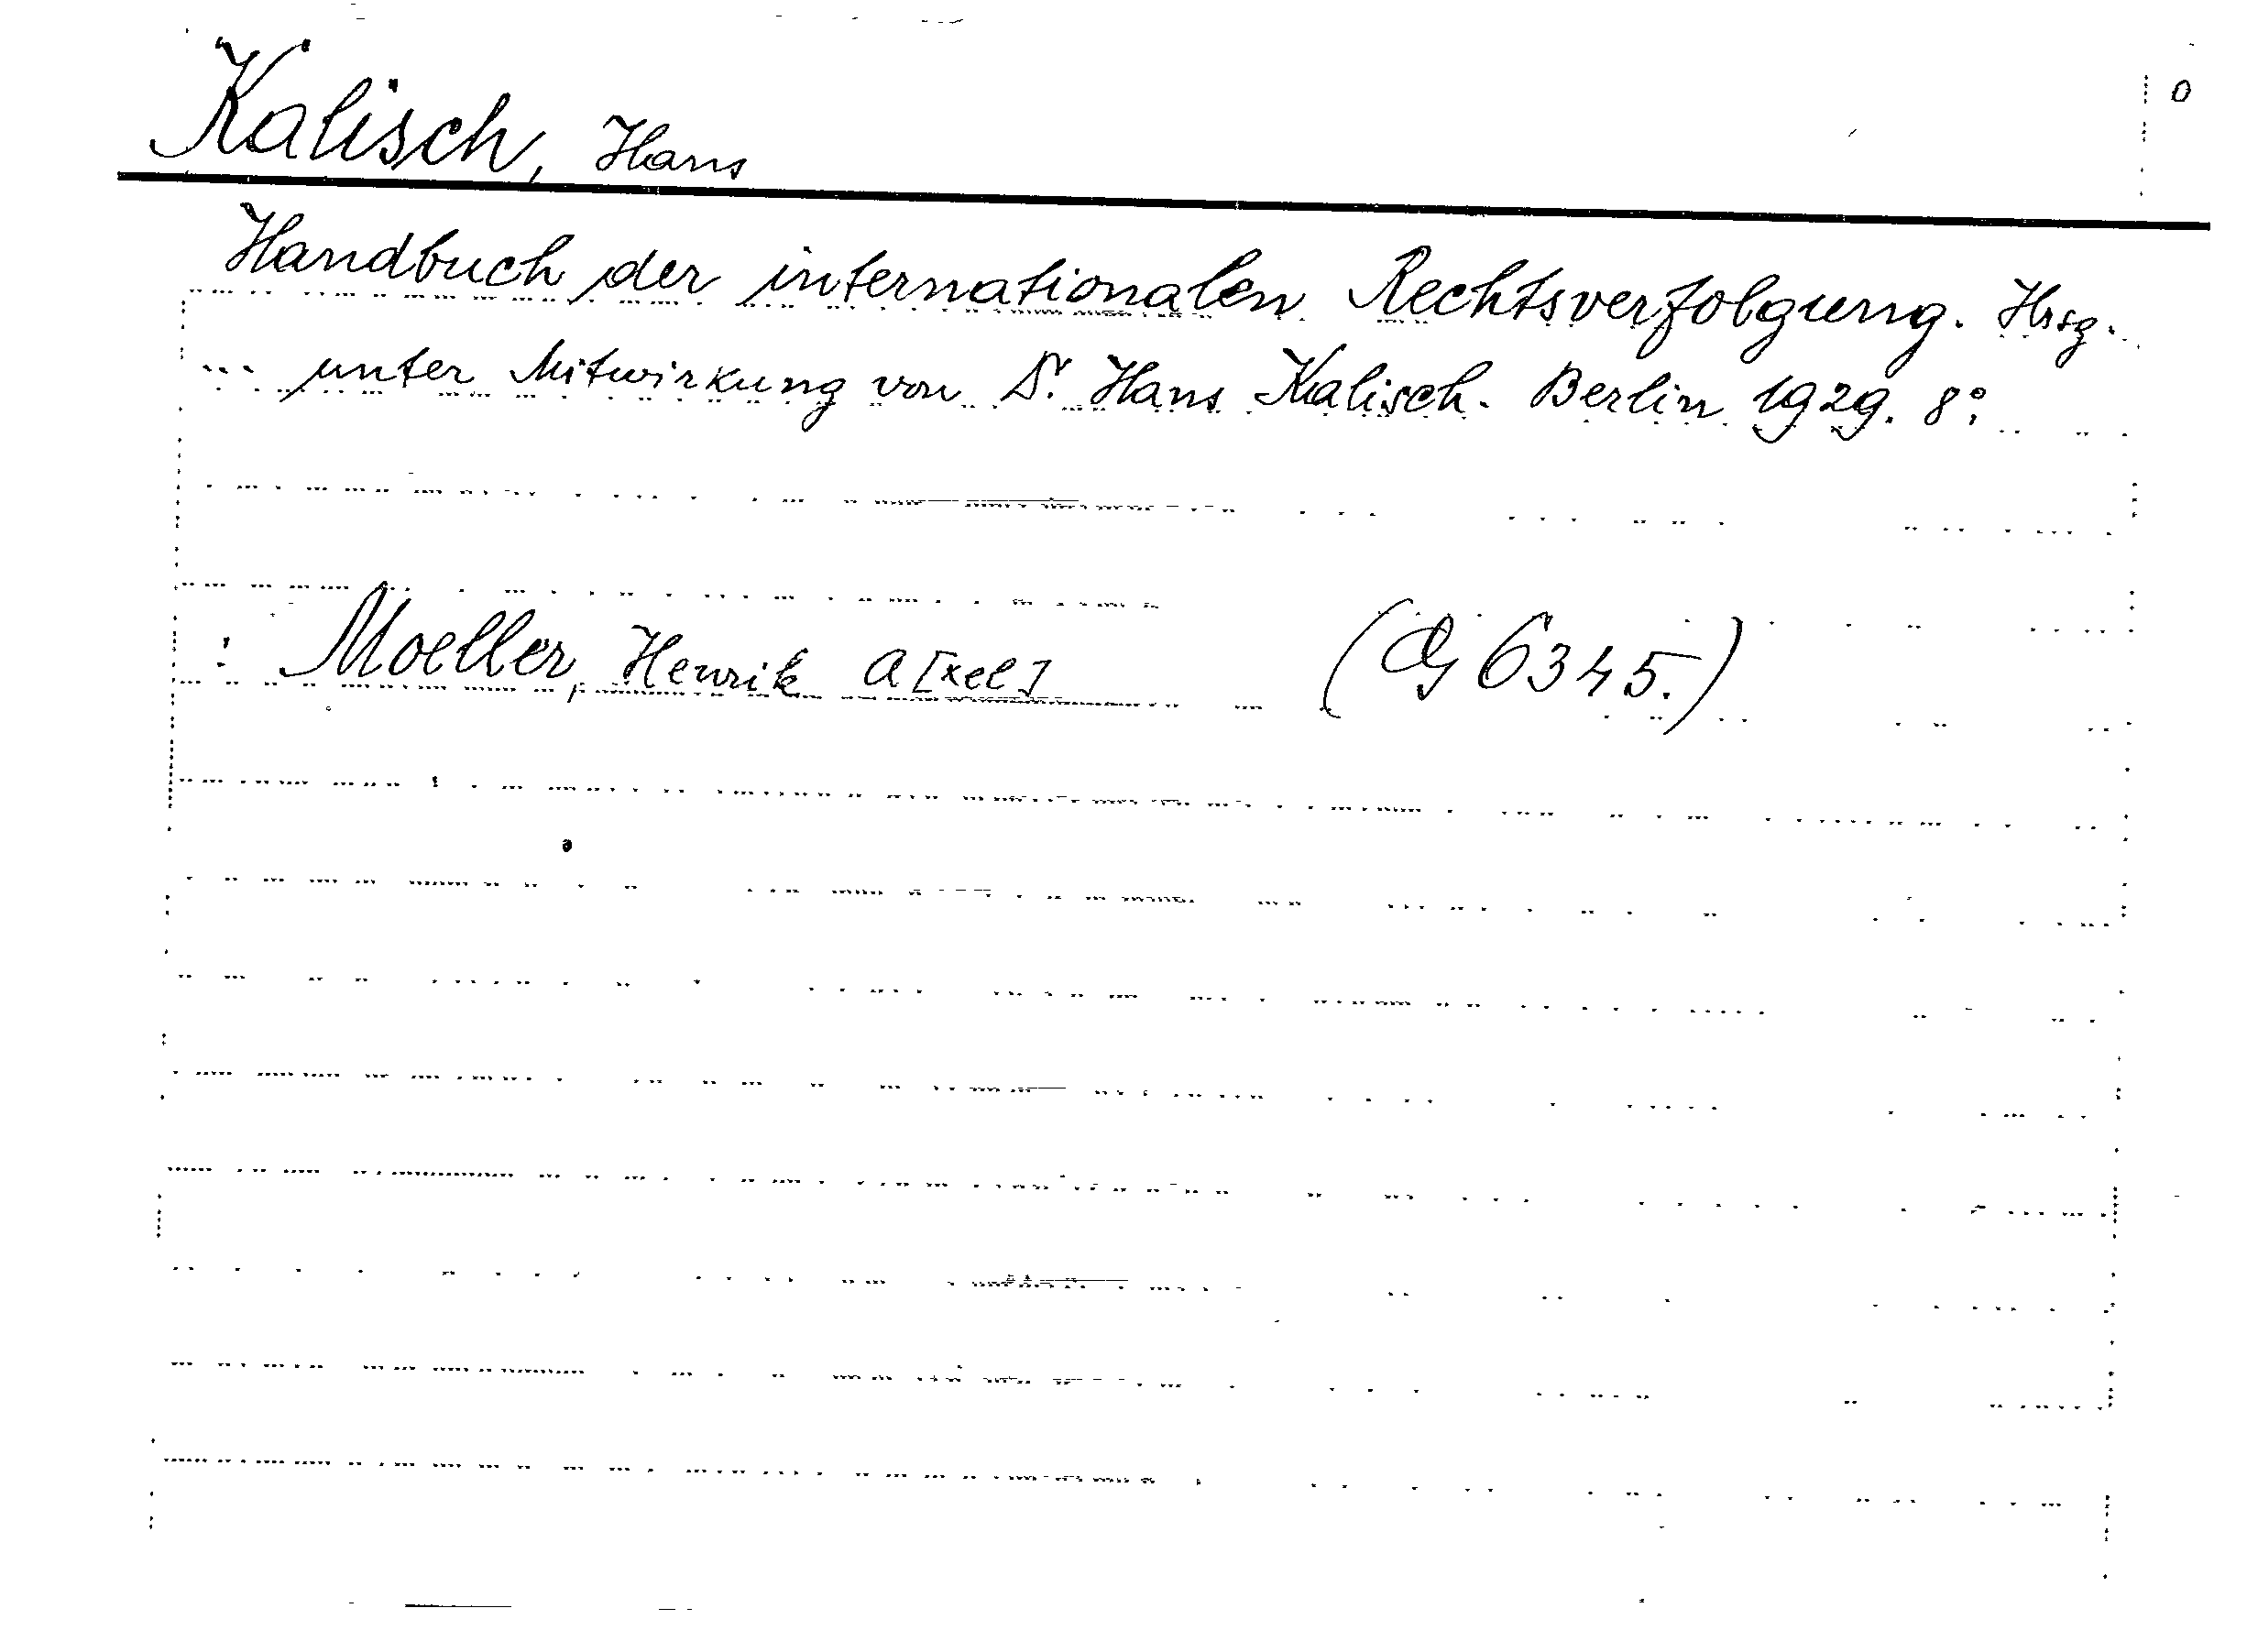 Kalisch, Hans
0
Handbuch der internationalen Rechtsverfolgung. Hrsg.
... unter Mitwirkung von Dr. Hans Kalisch. Berlin 1929. 8°.
: Moeller, Henrik A[xel] 6345.)